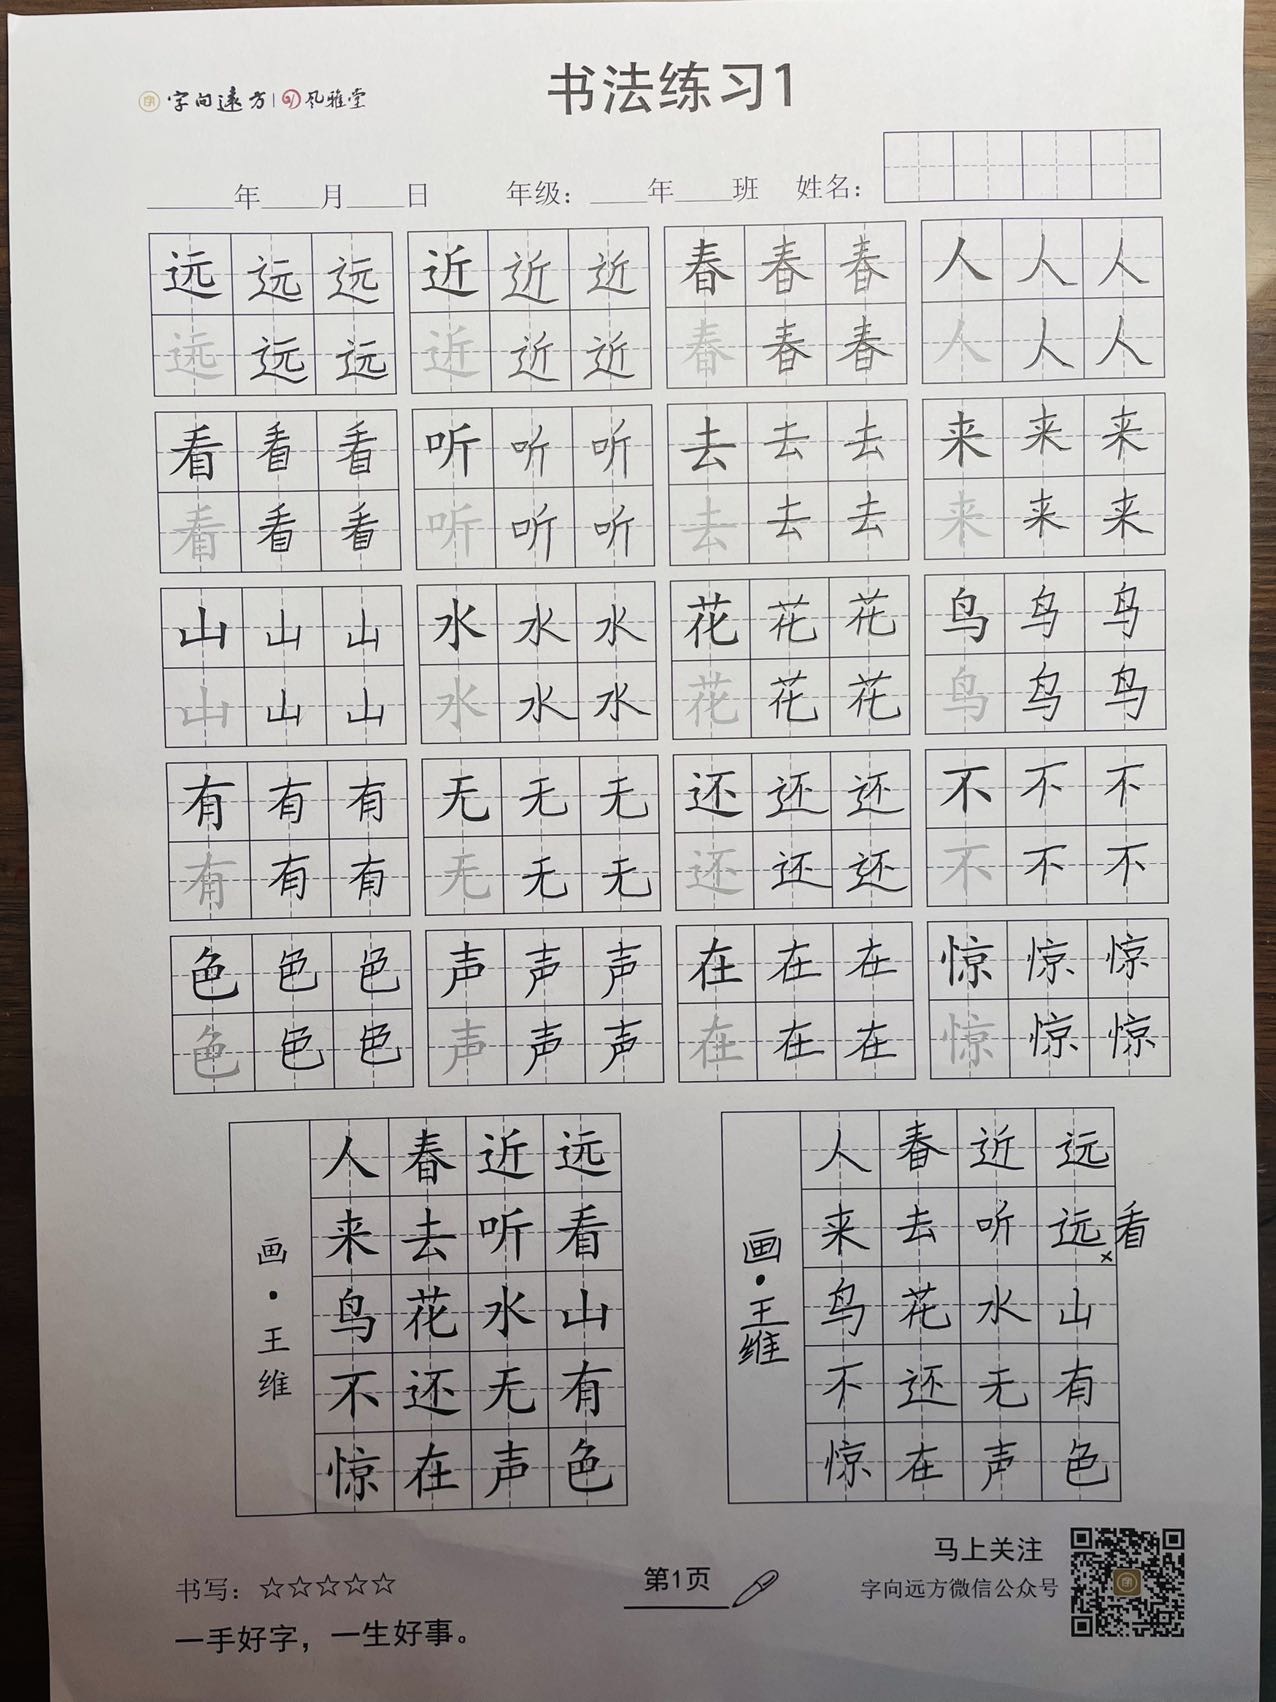 书法练习1
字向遠方 | 风雅堂
年 月 日 年级： 年 班 姓名：
远远远 近近近 春春春 人人人
远远远 近近近 春春春 人人人
看看看 听听听 去去去 来来来
看看看 听听听 去去去 来来来
山山山 水水水 花花花 鸟鸟鸟
山山山 水水水 花花花 鸟鸟鸟
有有有 无无无 还还还 不不不
有有有 无无无 还还还 不不不
色色色 声声声 在在在 惊惊惊
色色色 声声声 在在在 惊惊惊
远看山有色
近听水无声
春去花还在
人来鸟不惊
画·王维
远远×看山有色
近听水无声
春去花还在
人来鸟不惊
画·王维
书写：☆☆☆☆☆
一手好字，一生好事。
第1页
马上关注
字向远方微信公众号